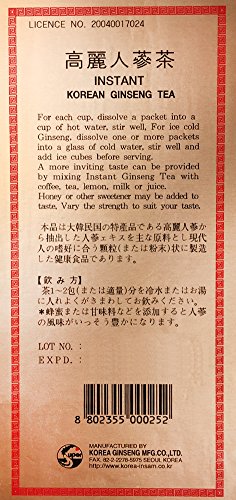 LICENCE NO. 20040017024
高麗人蔘茶
INSTANT
KOREAN GINSENG TEA
For each cup, dissolve a packet into a
cup of hot water, stir well, For ice cold
Ginseng, dissolve one or more packets
into a glass of cold water, stir well and
add ice cubes before serving.
A more inviting taste can be provided
by mixing Instant Ginseng Tea with
coffee, tea, lemon, milk or juice.
Honey or other sweetener may be added to
taste. Vary the strength to suit your taste.
本品は大韓民国の特產品である高麗人蔘か
ら抽出した人蔘エキスを主な原料とし現代
人の嗜好に合う顆粒(または粉末)状に製造
した健康食品であります。
【飲み方】
茶1~2包(または適量)分を冷水またはお湯
に入れよくかきまわしてお飲みください。
*蜂蜜または甘味料などを添加すると人蔘
の風味がいっそう豊かになります。
LOT NO. :
EXPD. :
8 802355 000252
Super
MANUFACTURED BY
KOREA GINSENG MFG.CO.,LTD.
FAX. 82-2-2278-5975 SEOUL KOREA
http://www.korea-insam.co.kr